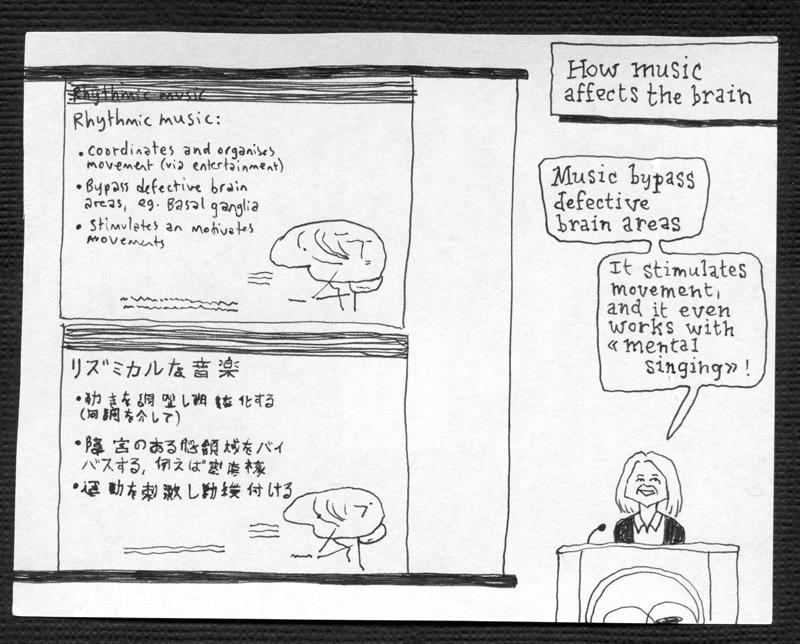 Rhythmic music
Rhythmic music:
• coordinates and organises
movement (via entertainment)
• Bypass defective brain
areas, eg. Basal ganglia
• Stimulates an motivates
movements
リズミカルな音楽
• 動きを調整し組織化する
(同調を介して)
• 障害のある脳領域をバイ
パスする, 例えば
• 運動を刺激し動機付ける
How music
affects the brain
Music bypass
defective
brain areas
It stimulates
movement,
and it even
works with
«mental
singing»!